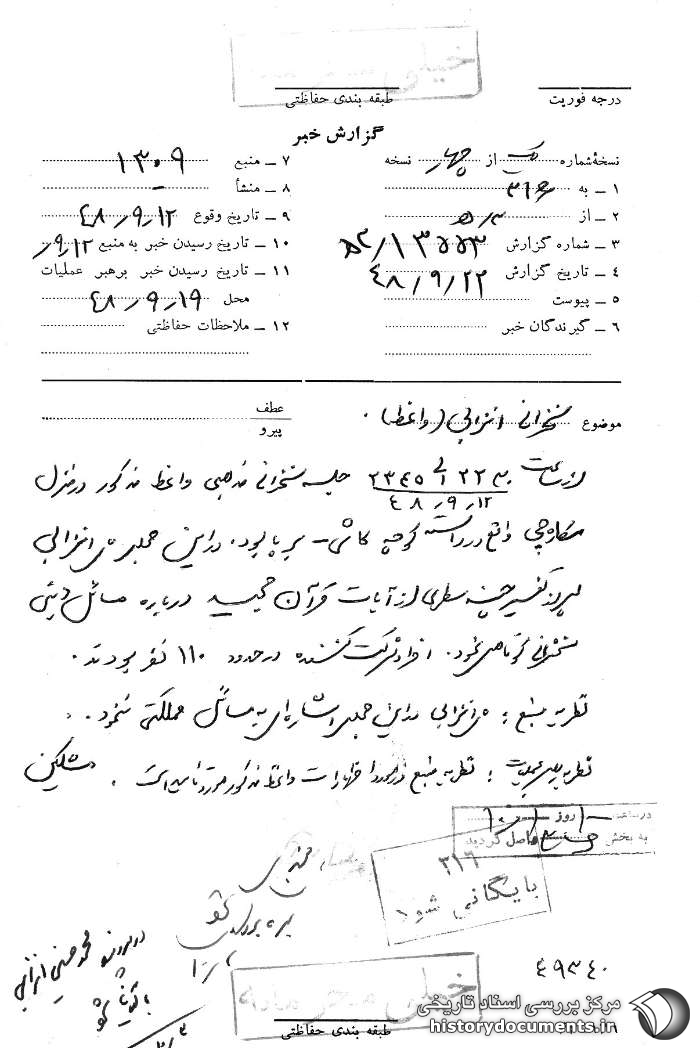 خیلی محرمانه
درجه فوریت
طبقه بندی حفاظتی
گزارش خبر
نسخۀ شماره یک از چهار نسخه
۱ ـ به ۳۱۶
۲ ـ از ۵ ه‍ ۳
۳ ـ شماره گزارش ۱۳۵۵۳ / ه‍ ۳
۴ ـ تاریخ گزارش ۴۸/۹/۲۲
۵ ـ پیوست
۶ ـ گیرندگان خبر
۷ ـ منبع ۱۳۰۹
۸ ـ منشأ
۹ ـ تاریخ وقوع ۴۸/۹/۱۲
۱۰ ـ تاریخ رسیدن خبر به منبع ۹/۱۲
۱۱ ـ تاریخ رسیدن خبر برهبر عملیات
محل ۴۸/۹/۱۹
۱۲ ـ ملاحظات حفاظتی
موضوع سخنرانی انزابی (واعظ) .
عطف
پیرو
از ساعت ۲۲۳۰ الی ۲۳۴۵ جلسه سخنرانی مذهبی واعظ مذکور در منزل
۴۸/۹/۱۲
واقع در راسته کوچه کاشی ـ برپا بود. در این جلسه انزابی
پس از تفسیر چند سطری از آیات قرآن مجید درباره مسائل دینی
سخنرانی کوتاهی نمود. افراد شرکت کننده در حدود ۱۱۰ نفر بودند.
نظریه منبع : انزابی در این جلسه اشاره‌ای به مسائل مملکتی ننمود .
نظریه رهبر عملیات : نظریه منبع در مورد اظهارات واعظ مذکور مورد تایید است . مشکین
در ساعت روز
به بخش ۳۱۶ واصل گردید
۳۱۶
بایگانی شود
در پرونده محمد حسین انزابی
بایگانی شود
خیلی محرمانه
۴۹۳۴۰
طبقه بندی حفاظتی
مرکز بررسی اسناد تاریخی
historydocuments.ir